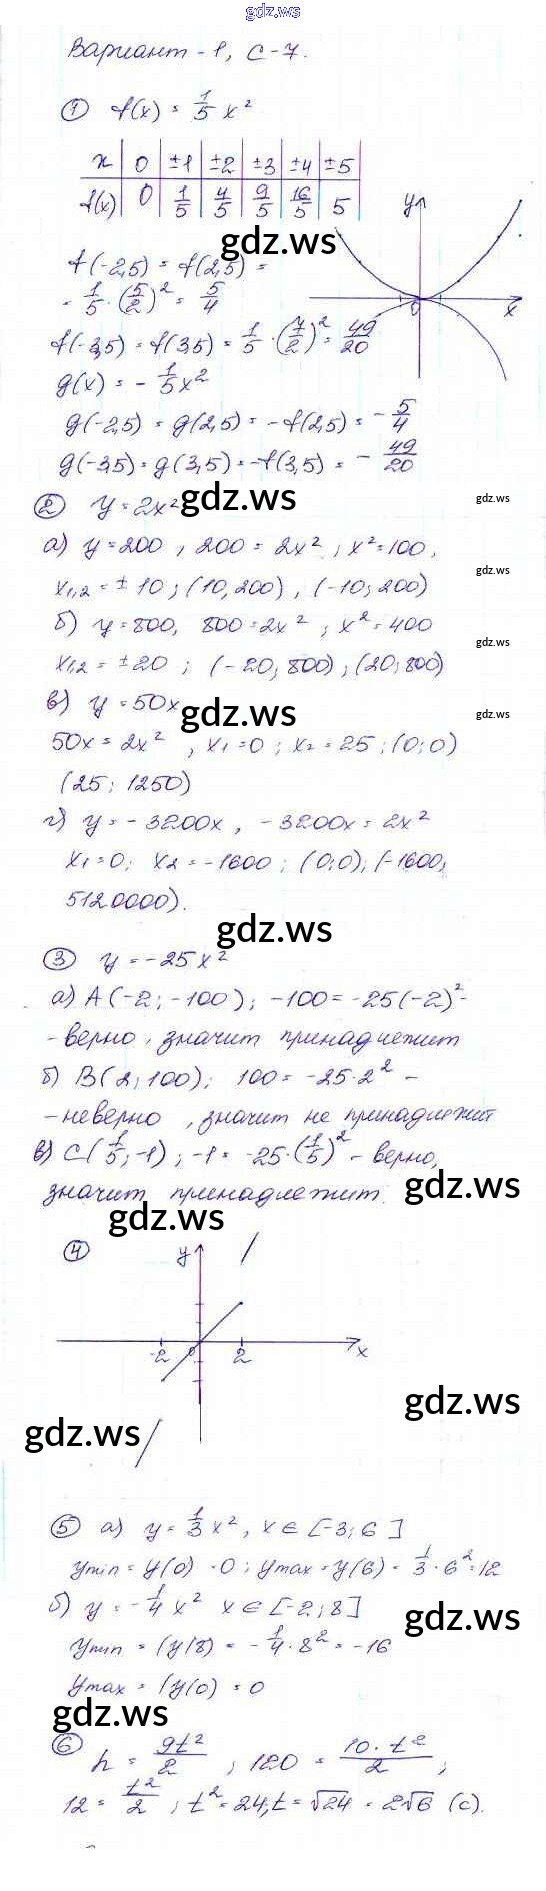 gdz.ws
Вариант-1, С-7.
① f(x) = 1/5 x²
x | 0 | ±1 | ±2 | ±3 | ±4 | ±5
f(x) | 0 | 1/5 | 4/5 | 9/5 | 16/5 | 5
y
0
x
gdz.ws
f(-2,5) = f(2,5) =
= 1/5 · (5/2)² = 5/4
f(-3,5) = f(3,5) = 1/5 · (7/2)² = 49/20
g(x) = - 1/5 x²
g(-2,5) = g(2,5) = -f(2,5) = - 5/4
g(-3,5) = g(3,5) = -f(3,5) = - 49/20
② y = 2x²
gdz.ws
gdz.ws
а) y = 200 , 200 = 2x² , x² = 100,
gdz.ws
x₁,₂ = ± 10 ; (10,200) , (-10; 200)
б) y = 800, 800 = 2x² ; x² = 400
gdz.ws
x₁,₂ = ±20 ; (-20, 800) ; (20; 800)
в) y = 50x
gdz.ws
gdz.ws
50x = 2x² , x₁ = 0 ; x₂ = 25 ; (0; 0)
(25; 1250)
г) y = - 3200x , -3200x = 2x²
x₁ = 0; x₂ = -1600 ; (0;0); (-1600;
5120000).
gdz.ws
③ y = -25x²
а) A(-2; -100); -100 = -25(-2)² -
- верно, значит принадлежит
б) B(2; 100); 100 = -25·2² -
- неверно, значит не принадлежит
в) C(1/5; -1) ; -1 = -25·(1/5)² - верно,
значит принадлежит.
gdz.ws
gdz.ws
④
y
-2 0 2 x
gdz.ws
gdz.ws
⑤ а) y = 1/3 x², x ∈ [-3; 6]
ymin = y(0) = 0 ; ymax = y(6) = 1/3 · 6² = 12
б) y = - 1/4 x² x ∈ [-2; 8]
gdz.ws
ymin = (y(8) = - 1/4 · 8² = -16
ymax = (y(0) = 0
gdz.ws
⑥ h = gt²/2 , 120 = 10·t²/2 ;
12 = t²/2 ; t² = 24; t = √24 = 2√6 (с).